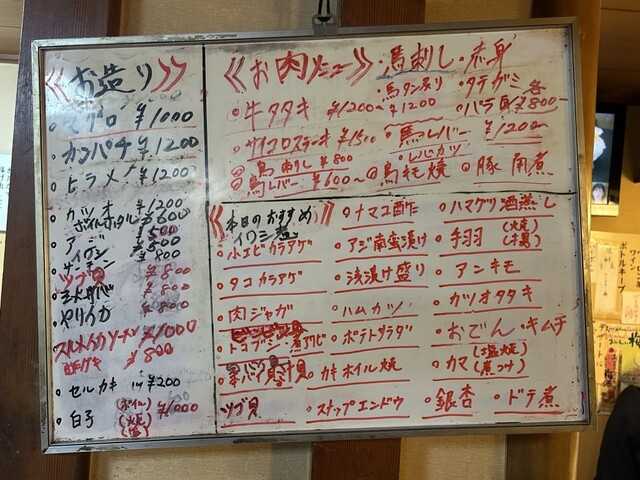 お造り
マグロ ¥1000
カンパチ ¥1200
ヒラメ ¥1200
カツオ ¥1200
ボイルホタル ¥600
アジ ¥500
イワシ ¥500
¥800
ツブ貝 ¥800
¥800
ヤリイカ ¥800
スルメイカソーメン ¥1000
¥800
セルカキ 1ケ ¥200
白子 (ポイル) (焼) ¥1000
お肉メニュー
・馬刺し・赤身
・馬タン炙り ・タテガミ 各
・牛タタキ ¥1200〜 ¥1200 ・バラ ¥800−
・サイコロステーキ ¥1500 ・馬レバー ¥1200〜
・鳥刺し ¥800 ・レバカツ
・鳥レバー ¥600〜 ・鳥モモ焼 ・豚角煮
本日のおすすめ
イワシ
・小エビカラアゲ
・タコカラアゲ
・肉ジャガ
ツブ貝
・ナマコ酢
・アジ南蛮漬け
・浅漬け盛り
・ハムカツ
・ポテトサラダ
・カキホイル焼
・スナップエンドウ
・ハマグリ酒蒸し
・手羽 (焼)
・アンキモ
・カツオタタキ
・おでん・キムチ
・カマ (塩焼) (煮つけ)
・銀杏 ・ドテ煮